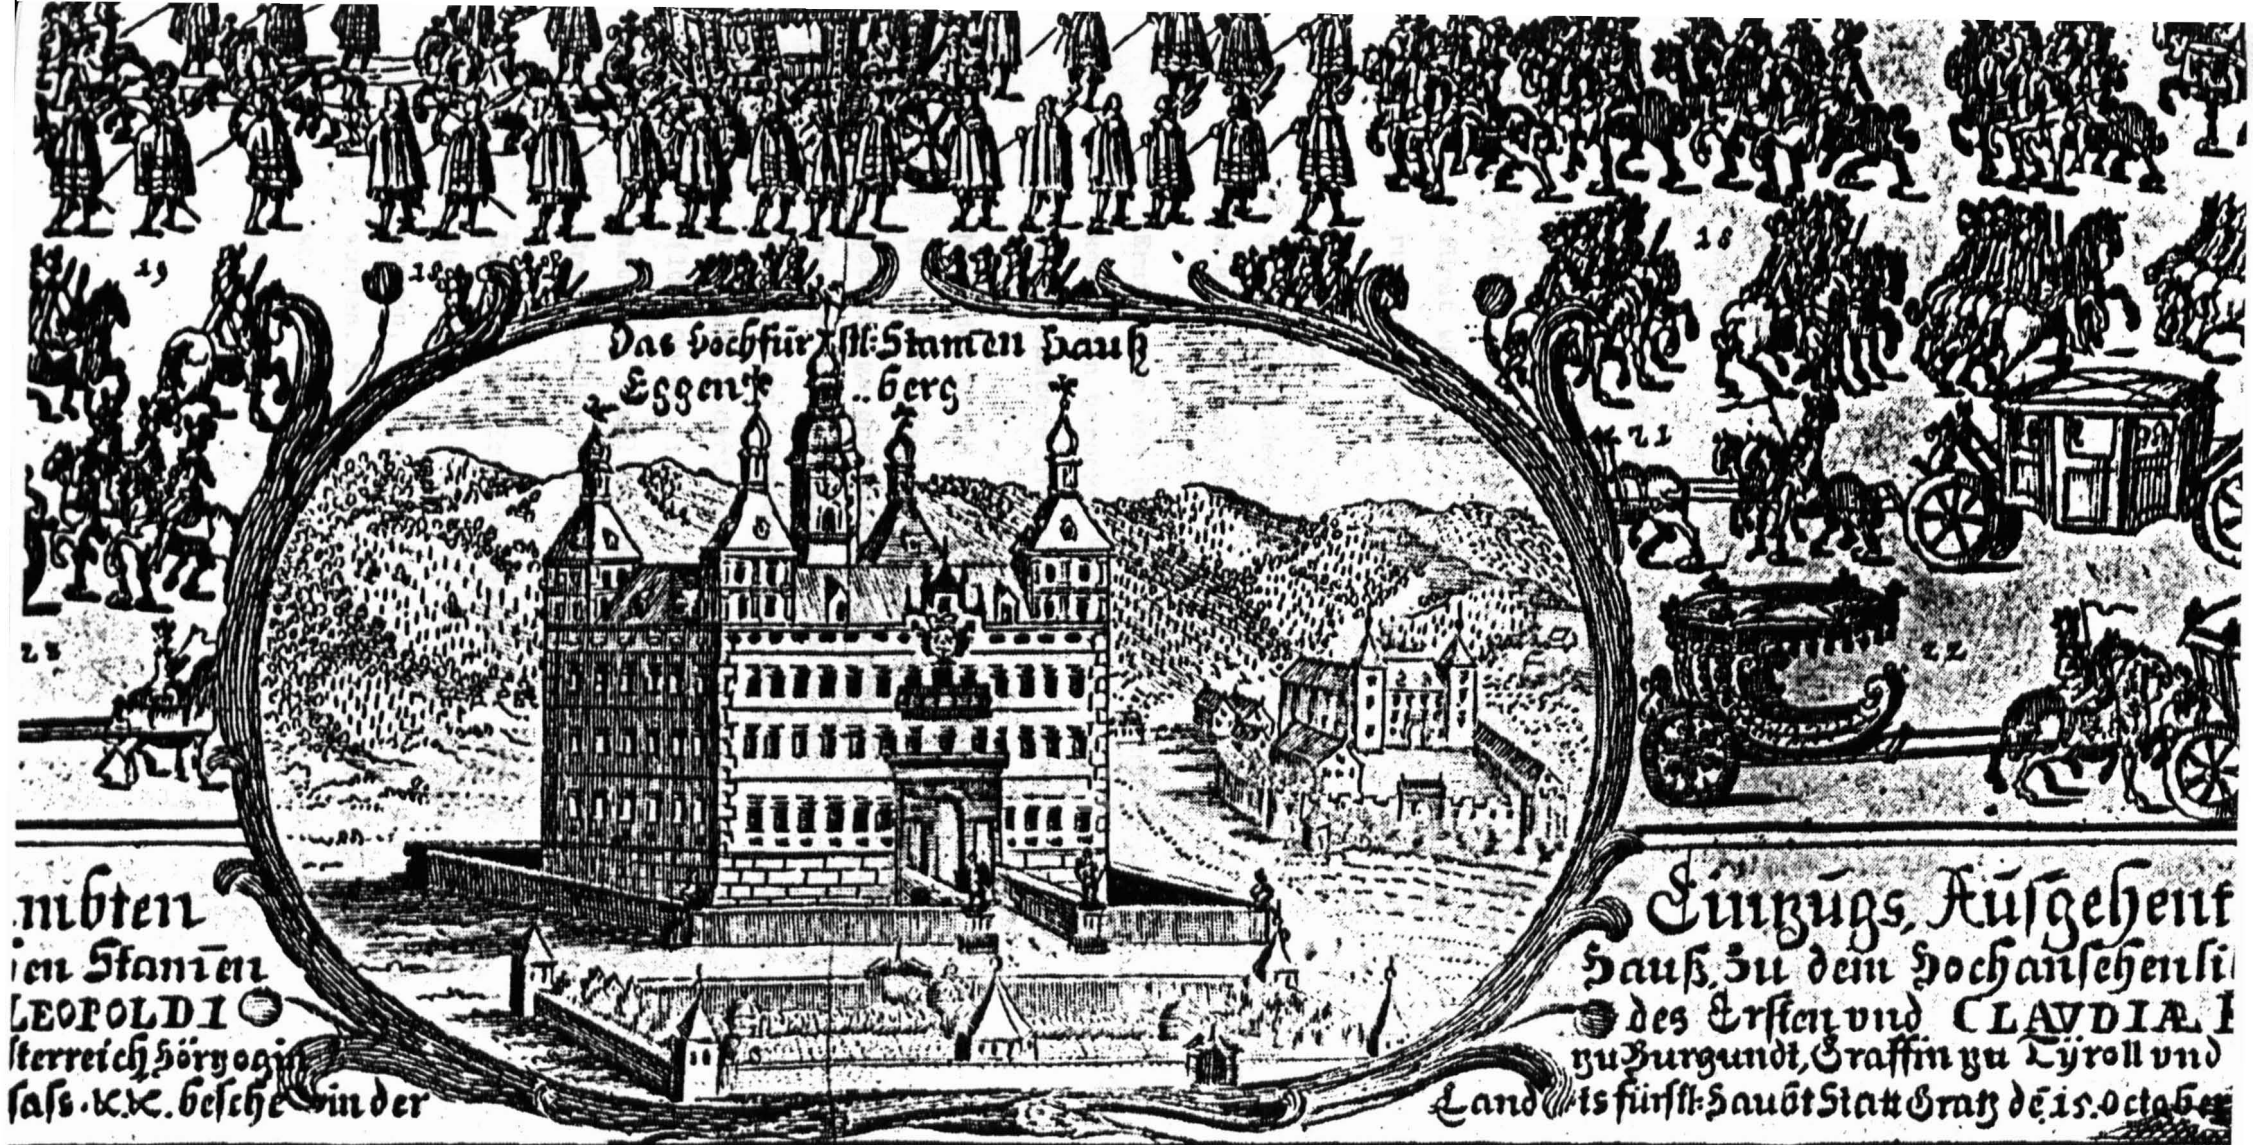 19
18
18
21
22
23
Das Hochfürstl: Stam̄en Hauß
Eggen..berg
mbten
en Stam̄en
LEOPOLDI
sterreich Hörzogin
sass. &c. &c. besche in der
Einzugs, Aüsgehent
Hauß, Zu dem Hochansehenli
des Ersten und CLAVDIÆ F
zu Burgundt, Graffin zu Tÿroll vnd
Landtsfürstl: Haubt Statt Gratz dē. 15. October